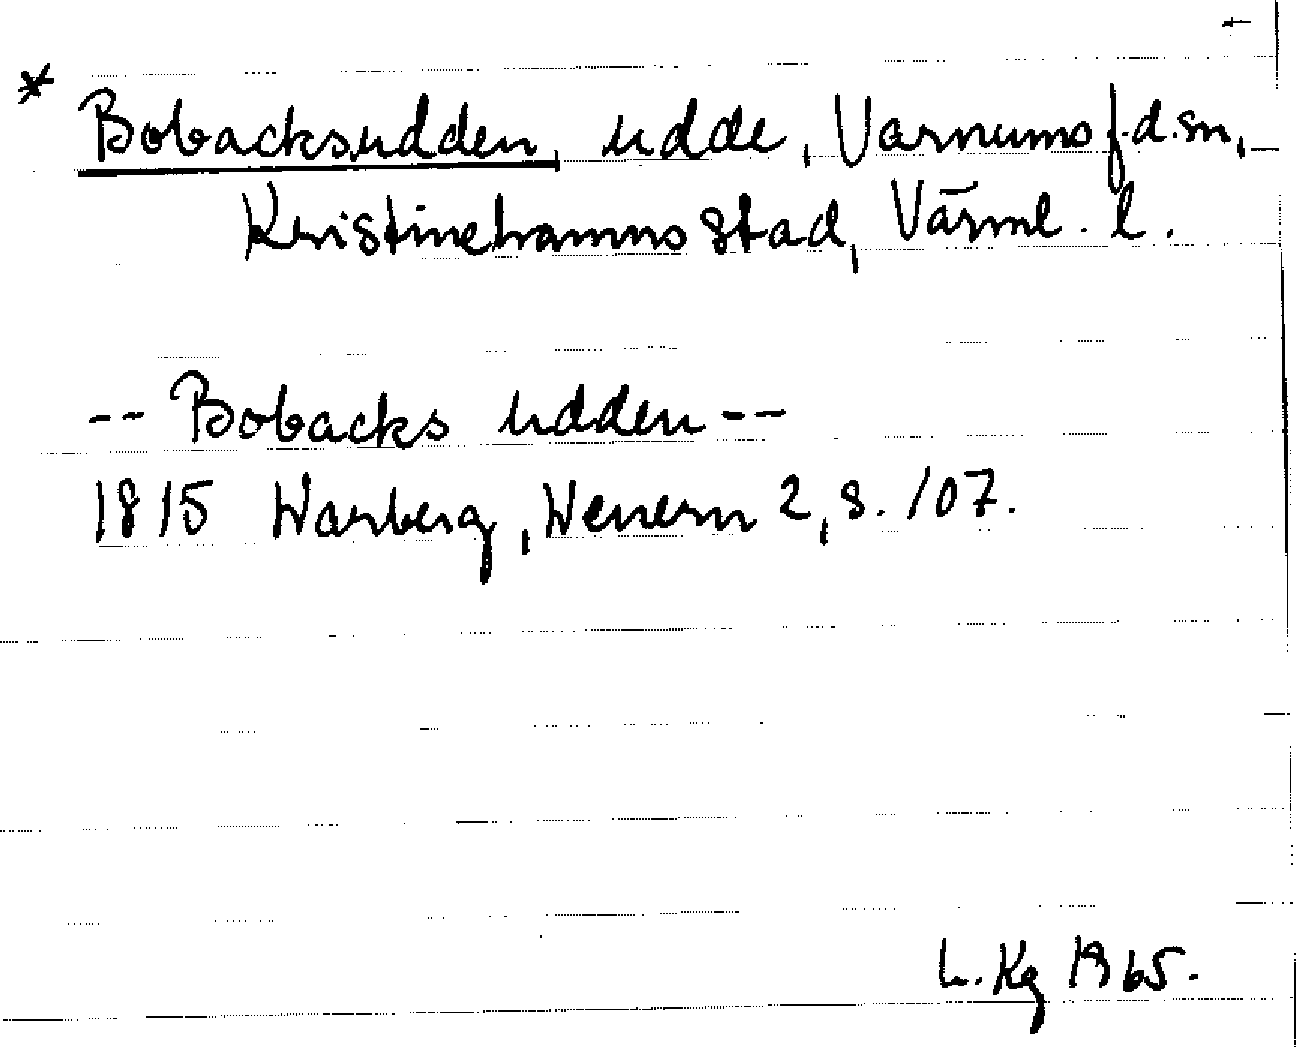 * Bobacksudden, udde, Varnums f.d. sn,
Kristinehamns stad, Värml. l.
-- Bobacks udden --
1815 Warberg, Wenern 2, s. 107.
L. Kg 1965.